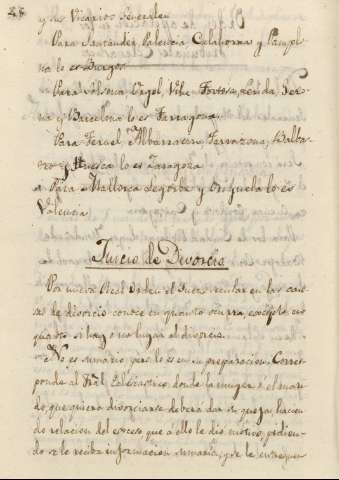 y sus Vicarios Generales
Para Santander, Palencia, Calahorra y Pamplo
na lo es Burgos
Para Solsona, Urgel, Vike Tortosa, Lerida, Gero
na y Barcelona lo es Tarragona
Para Teruel, Albarracin, Tarrazona, Balbas
tro y Huesca lo es Zaragoza
a Para Mallorca Segorbe y Orihuela lo es
Valencia
Juicio de Divorcio
Por nueva Real orden el Juez secular en las cau
sas de divorcio conoce en quanto sea pra, excepto en
quanto si hay o no lugar al divorcio.
No es sumario pero lo es en su preparacion. Corres
ponde al Tral Eclesiastico donde la muger o el mari
do, que quiera divorciarse debera dar su queja, hacien
do relacion del exceso que a ello le dio motivo, pidien
do se le reciba informacion sumaria, y se le entreguen